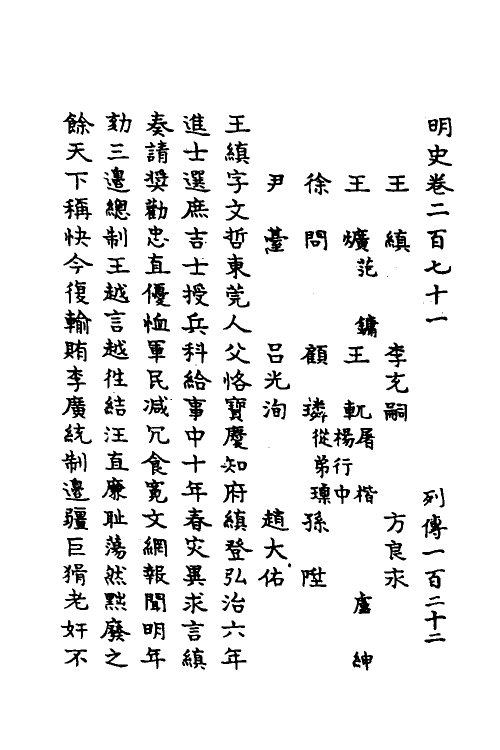 明史卷二百七十一 列傳一百二十二
王縝 李充嗣 方良永
王爌 范鏞 王軏 屠楷 楊行中 盧紳
徐問 顧璘 從弟瑮 孫陞
尹臺 呂光洵 趙大佑
王縝字文哲東莞人父恪寶慶知府縝登弘治六年
進士選庶吉士授兵科給事中十年春灾異求言縝
奏請奬勸忠直優恤軍民減冗食寬文網報聞明年
劾三邊總制王越言越徃結汪直廉耻蕩然黜廢之
餘天下稱快今復輸賄李廣統制邊疆巨猾老奸不